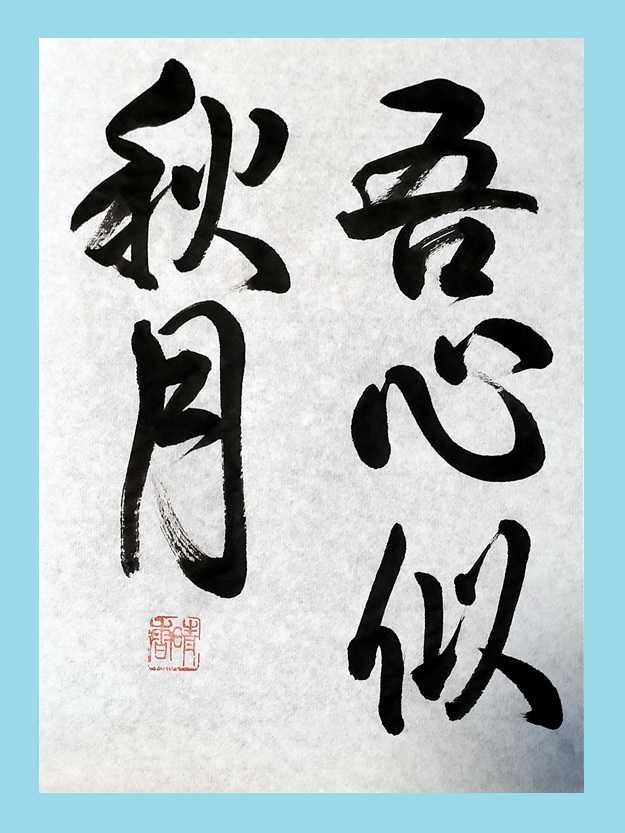 吾心似
秋月
晴香